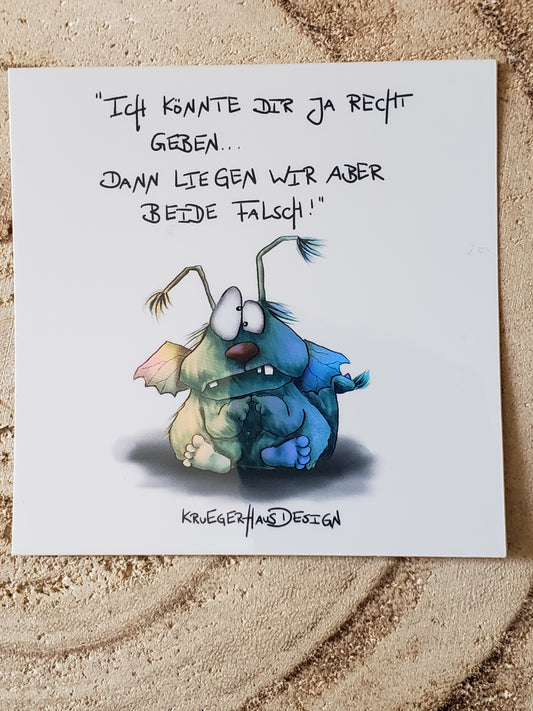 "ICH KÖNNTE DIR JA RECHT
GEBEN...
DANN LIEGEN WIR ABER
BEIDE FALSCH!"
KRUEGERHAUSDESIGN